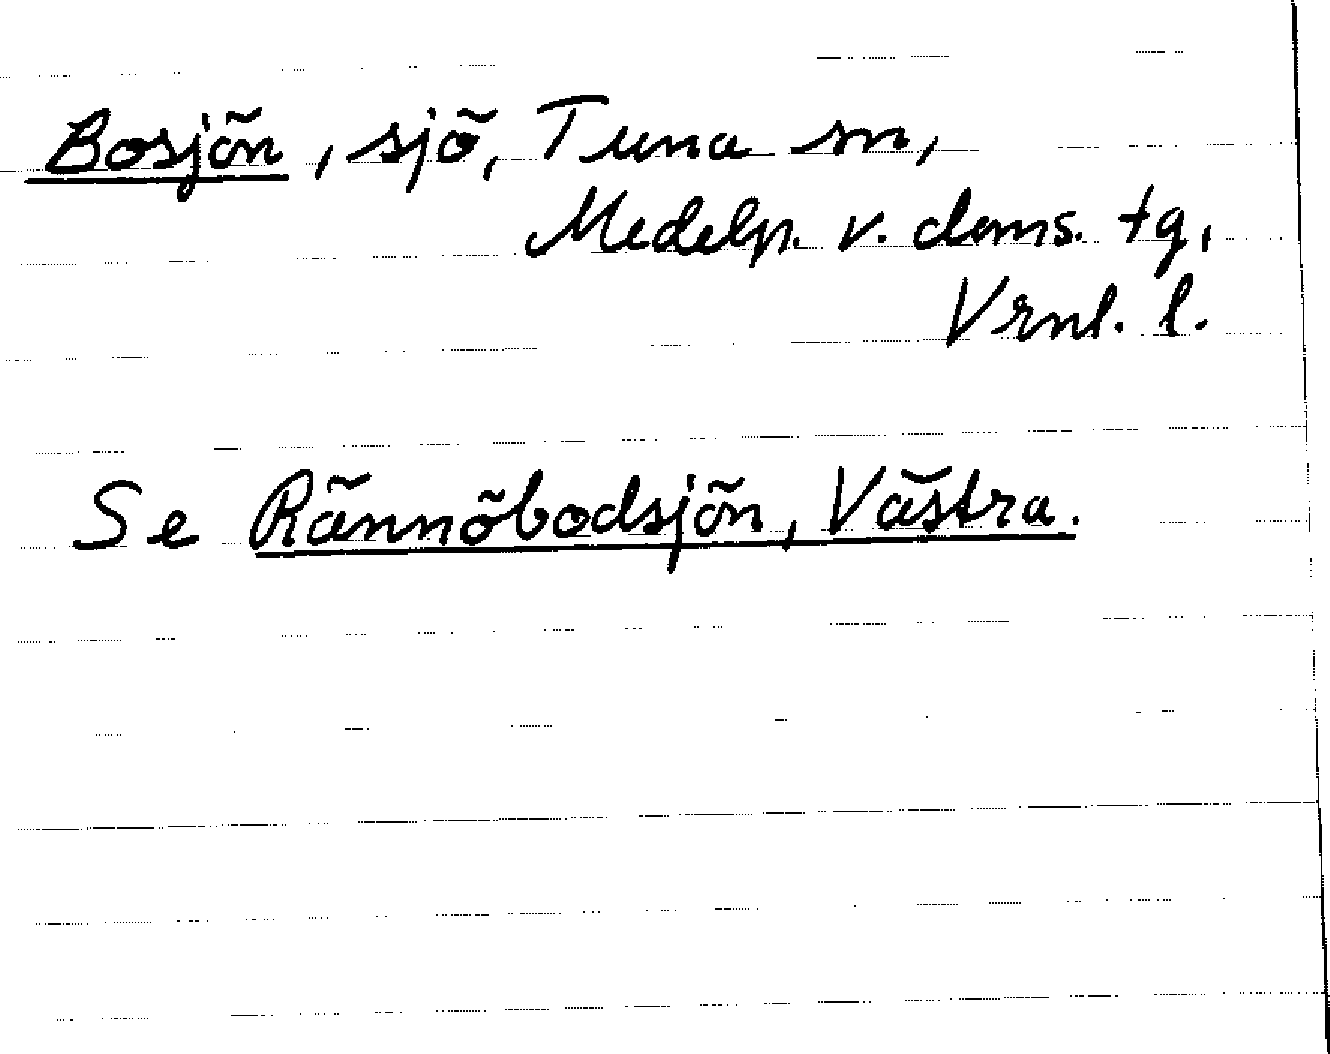 Bosjön, sjö, Tuna sn,
Medelp. v. doms. tg,
Vrnl. l.
Se Rännöbodsjön, Västra.